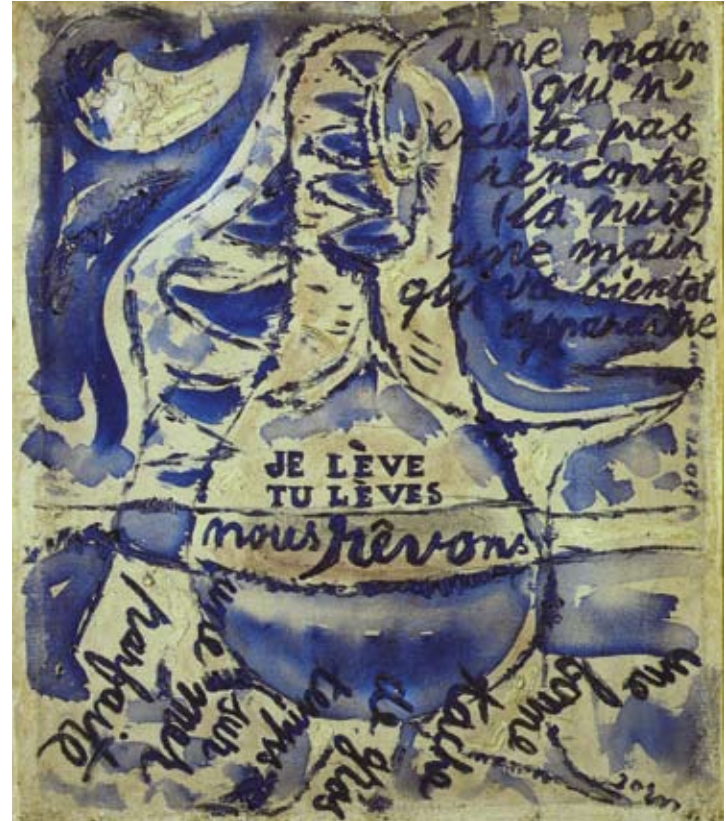 une main
qui n'
existe pas
rencontre
(la nuit)
une main
qui va bientôt
apparaître
JE LÈVE
TU LÈVES
nous rêvons
une
bonne
de gros
temps
sur
une mer
parfaite
Jorn